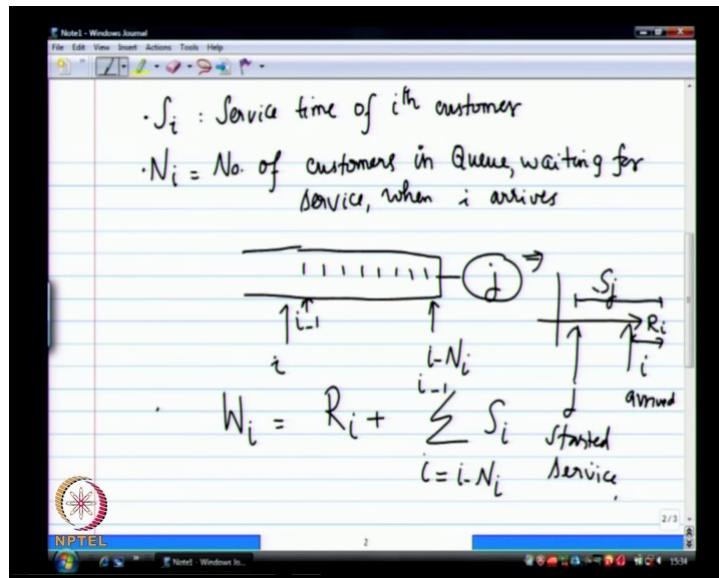 Note1 - Windows Journal
File Edit View Insert Actions Tools Help
· S_i : Service time of i^th customer
· N_i = No. of customers in Queue, waiting for
service, when i arrives
j
⇒
S_j
i-1
R_i
i
i-N_i
i
arrived
j
started
service
W_i = R_i + Σ_{i=i-N_i}^{i-1} S_i
2/3
2
NPTEL
Note1 - Windows Jo...
15:34